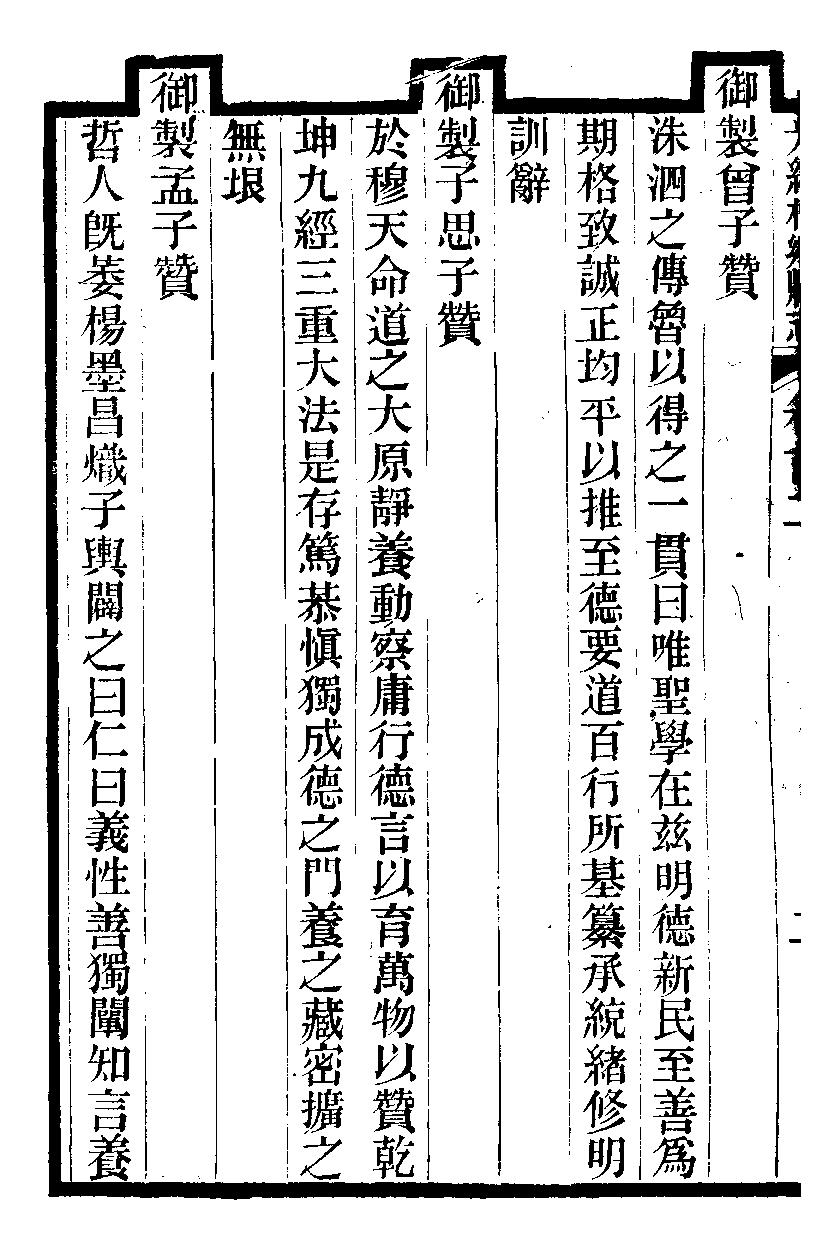 御製曾子贊
洙泗之傳魯以得之一貫曰唯聖學在茲明德新民至善爲
期格致誠正均平以推至德要道百行所基纂承統緒修明
訓辭
御製子思子贊
於穆天命道之大原靜養動察庸行德言以育萬物以贊乾
坤九經三重大法是存篤恭愼獨成德之門養之藏密擴之
無垠
御製孟子贊
哲人旣萎楊墨昌熾子輿闢之曰仁曰義性善獨闡知言養